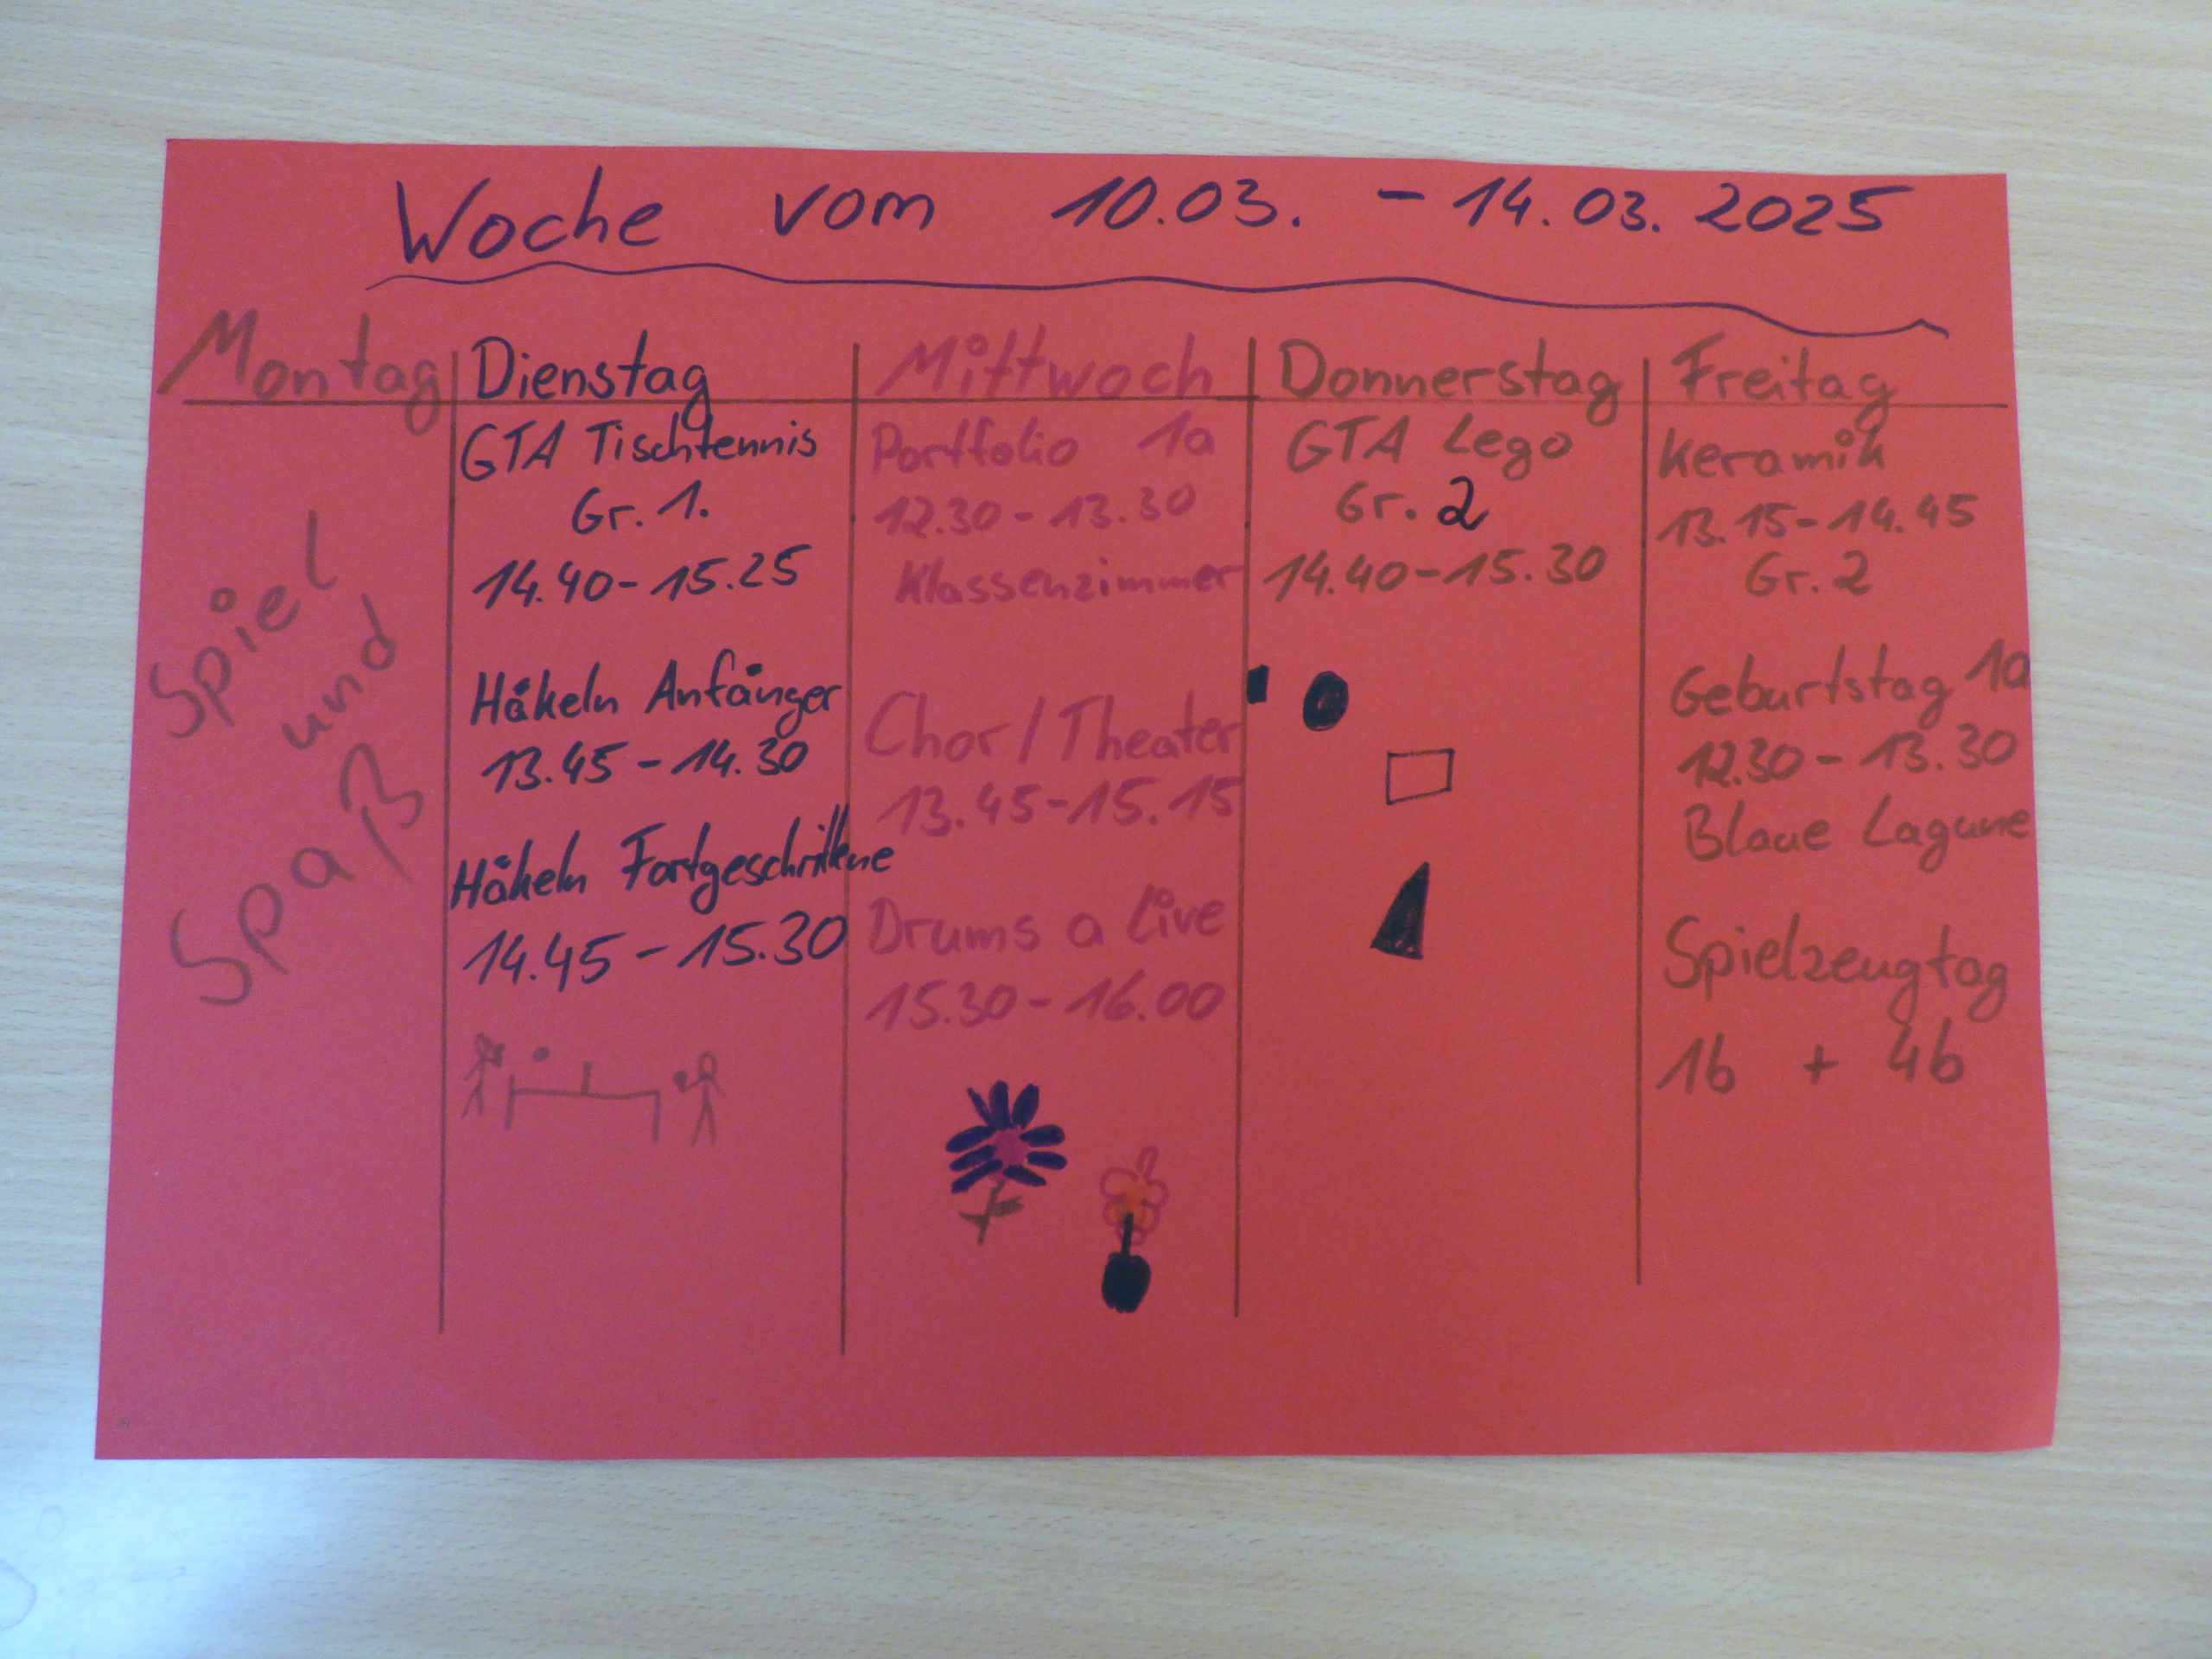 Woche vom 10.03. - 14.03. 2025
Montag
Spiel
und
Spaß
Dienstag
GTA Tischtennis
Gr. 1.
14.40 - 15.25
Häkeln Anfänger
13.45 - 14.30
Häkeln Fortgeschrittene
14.45 - 15.30
Mittwoch
Portfolio 1a
12.30 - 13.30
Klassenzimmer
Chor / Theater
13.45 - 15.15
Drums a live
15.30 - 16.00
Donnerstag
GTA Lego
Gr. 2
14.40 - 15.30
Freitag
Keramik
13.15 - 14.45
Gr. 2
Geburtstag 1a
12.30 - 13.30
Blaue Lagune
Spielzeugtag
1b + 4b